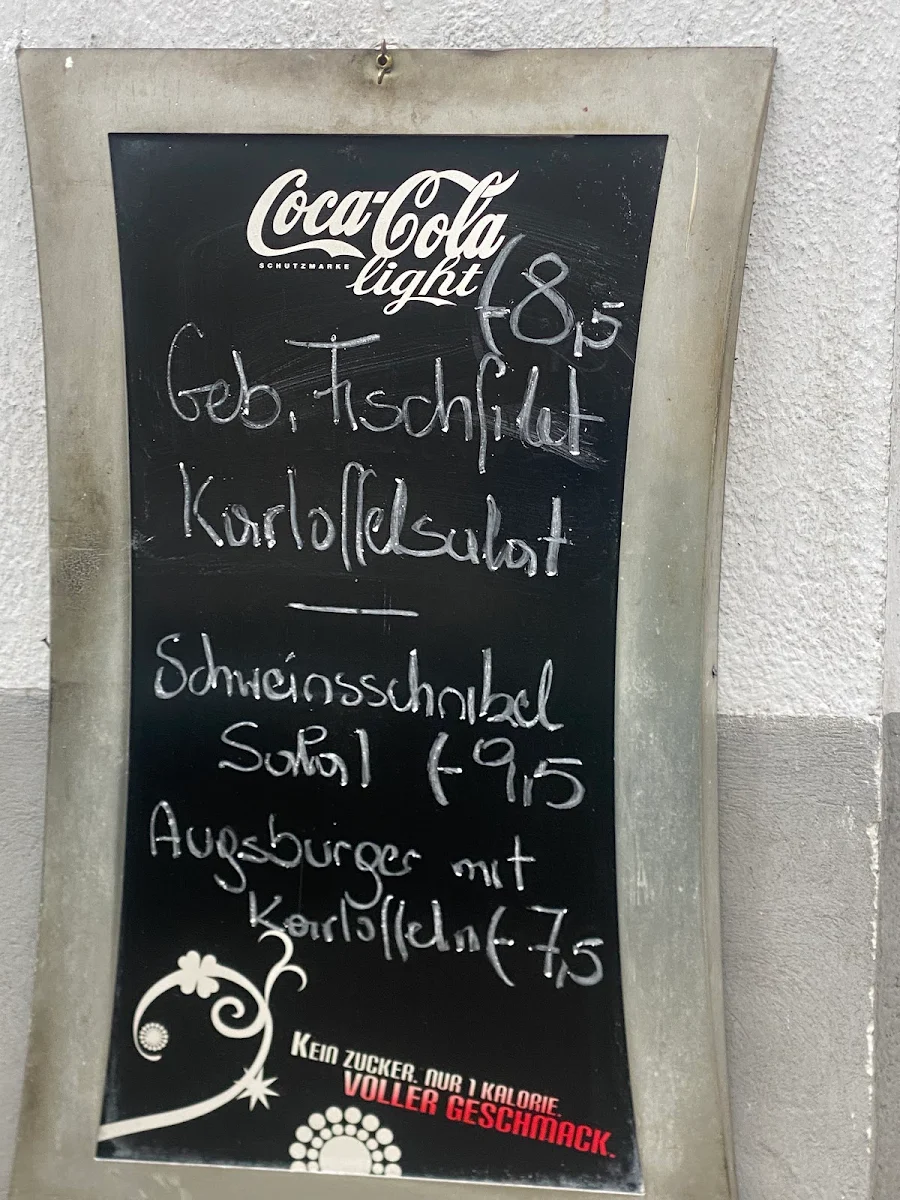 Coca-Cola
SCHUTZMARKE
light
€ 8,5
Geb. Fischfilet
Kartoffelsalat
Schweinsschnitzel
Salat € 9,5
Augsburger mit
Kartoffeln € 7,5
KEIN ZUCKER. NUR 1 KALORIE.
VOLLER GESCHMACK.